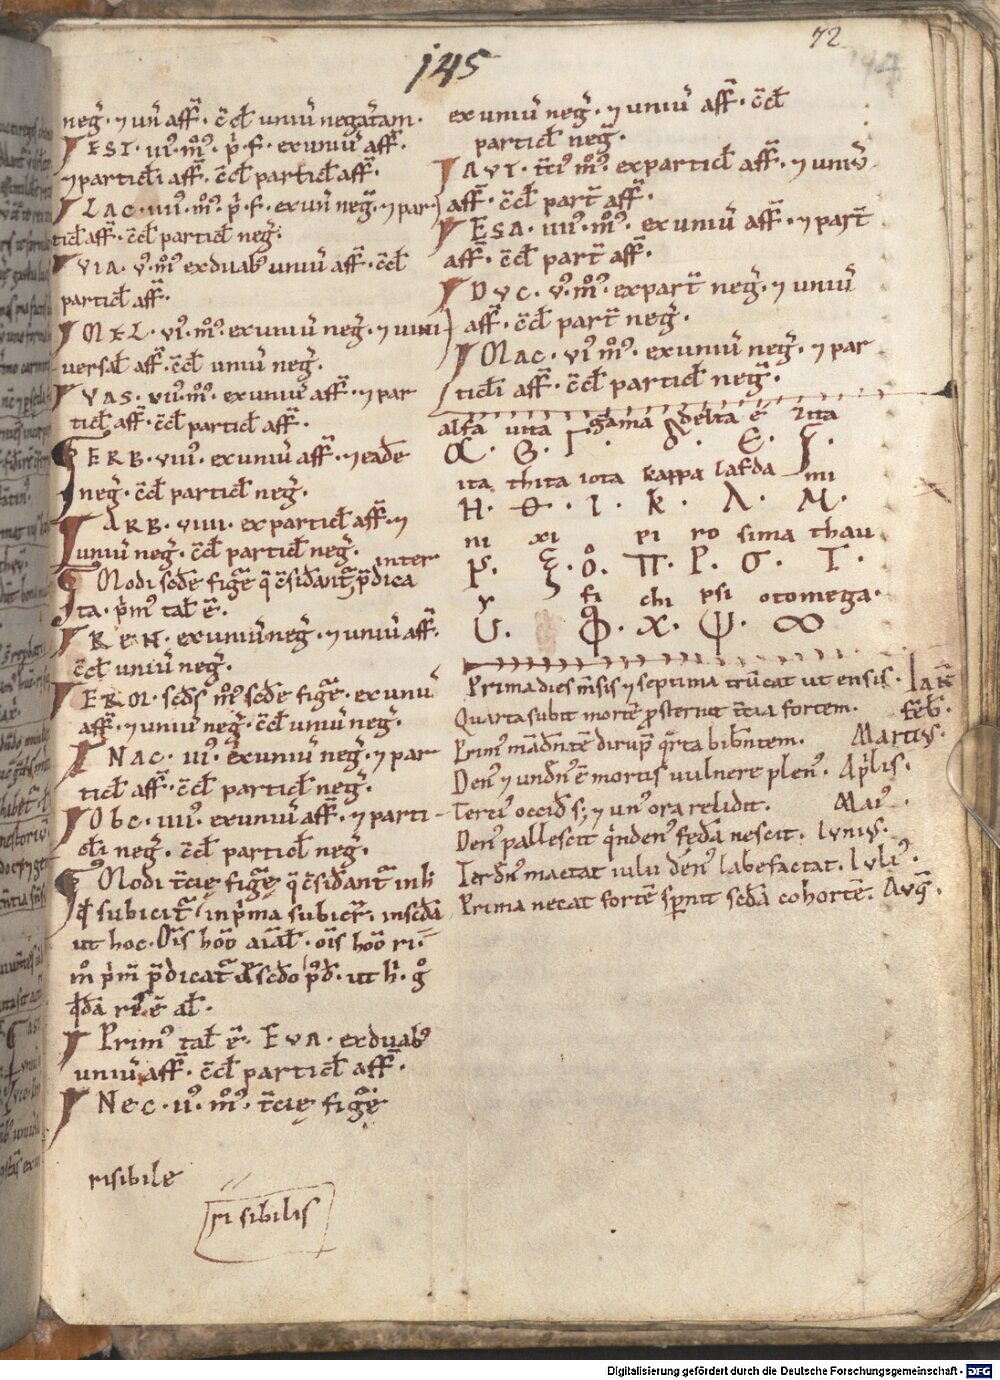 72
145
negͣ. ⁊ un̄ aff̄. c̄cl̄ uniu̾ negat̄am.
ESI. iii. m̊. p̾. f. ex uniu̾ aff̄.
⁊ particl̄i aff̄. c̄cl̄ particl̄ aff̄.
LAC. iiii. m̊. p̾. f. ex un̾ neḡ. ⁊ par
ticl̄ aff̄. c̄cl̄ particl̄ neḡ.
VIA. v. m̊. ex duab; uniu̾ aff̄. c̄cl̄
particl̄ aff̄.
MEL. vi. m̊. ex uniu̾ neḡ. ⁊ uni
versal̄ aff̄. c̄cl̄ uniu̾ neḡ.
VAS. vii. m̊. ex uniu̾ aff̄. ⁊ par
ticl̄ aff̄. c̄cl̄ particl̄ aff̄.
ERB. viii. ex uniu̾ aff̄. ⁊ eadē
neḡ. c̄cl̄ particl̄ neḡ.
ARB. viiii. ex particl̄ aff̄. ⁊
uniu̾ neḡ. c̄cl̄ particl̄ neḡ.
inter
Modi scd̄e figr̄e q̄ c̄sidant̾ p̄dica
ta. p̾m᷒ tal̄ ē.
REN. ex uniu̾ neḡ. ⁊ uniu̾ aff̄.
c̄cl̄ uniu̾ neḡ.
ERM. scd̄s m̊ scd̄e figr̄e. ex uniu̾
aff̄. ⁊ uniu̾ neḡ. c̄cl̄ uniu̾ neḡ.
NAC. iii. ex uniu̾ neḡ. ⁊ par
ticl̄ aff̄. c̄cl̄ particl̄ neḡ.
Obc. iiii. ex uniu̾ aff̄. ⁊ parti
cl̄i neḡ. c̄cl̄ particl̄ neḡ.
Modi t̄cię figr̄ę q̄ c̄sidant̾ in h̄
qd̄ subicit̾ in p̾ma subicit̾. in scd̄a
ut hoc. Oīs hōo aīal̄. oīs hōo ri
m̊ p̾m̄ p̄dicat̾ d̄ scd̄o p̄d̄. ut h̾. g̊
qd̄a res ē al̄.
Prim᷒ tal̄ ē. EVA. ex duab᷒
uniu̾ aff̄. c̄cl̄ particl̄ aff̄.
Nec. ii. m̊. t̄cię figr̄ę
risibile
risibilis
ex uniu̾ neḡ. ⁊ uniu̾ aff̄. c̄cl̄
particl̄ neḡ.
AVI. t̄ci᷒ m̊. ex particl̄ aff̄. ⁊ uniu̾
aff̄. c̄cl̄ part̄ aff̄.
ESA. iiii. m̊. ex uniu̾ aff̄. ⁊ part̄
aff̄. c̄cl̄ part̄ aff̄.
DVC. v. m̊. ex part̄ neḡ. ⁊ uniu̾
aff̄. c̄cl̄ part̄ neḡ.
MAC. vi. m̊. ex uniu̾ neḡ. ⁊ par
ticl̄i aff̄. c̄cl̄ particl̄ neḡ.
alfa uita gama delta e zita
α. Ϭ. Γ. δ. Є. ζ.
ita thita iota kappa lafda mi
H. Θ. I. K. Λ. M.
ni xi pi ro sima thau
ξ. ο. π. P. σ. T.
y fi chi psi otomega.
U. Φ. χ. ψ. ∞
Prima dies m̄sis ⁊ septima trūcat ut ensis. Ian̄
Quarta subit mortē p̄sternit t̄cia fortem. Feb̄.
Prim᷒ mād̄nt̄e dirup̄ q̾rta bib̄ntem. Martis.
Den᷒ ⁊ und̄n᷒ ē mortis uulnere plen᷒. Ap̾lis.
Terci᷒ occid̄ s; ⁊ un᷒ ora relidit. Mai᷒.
Den᷒ pallescit q̾nden᷒ fed̄a nescit. Iunis.
Terd̄n᷒ mactat iulii den᷒ labefactat. Iuli᷒.
Prima necat fortē sp̄nit scd̄a cohortē. Avḡ.
Digitalisierung gefördert durch die Deutsche Forschungsgemeinschaft - DFG